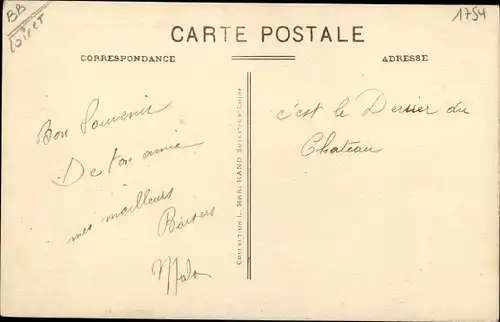 BB
Loiret
1754
CARTE POSTALE
CORRESPONDANCE
ADRESSE
Bon Souvenir
De ton amie
mes meilleurs
Baisers
c'est le Derrier du
Chateau
COLLECTION L. MARCHAND